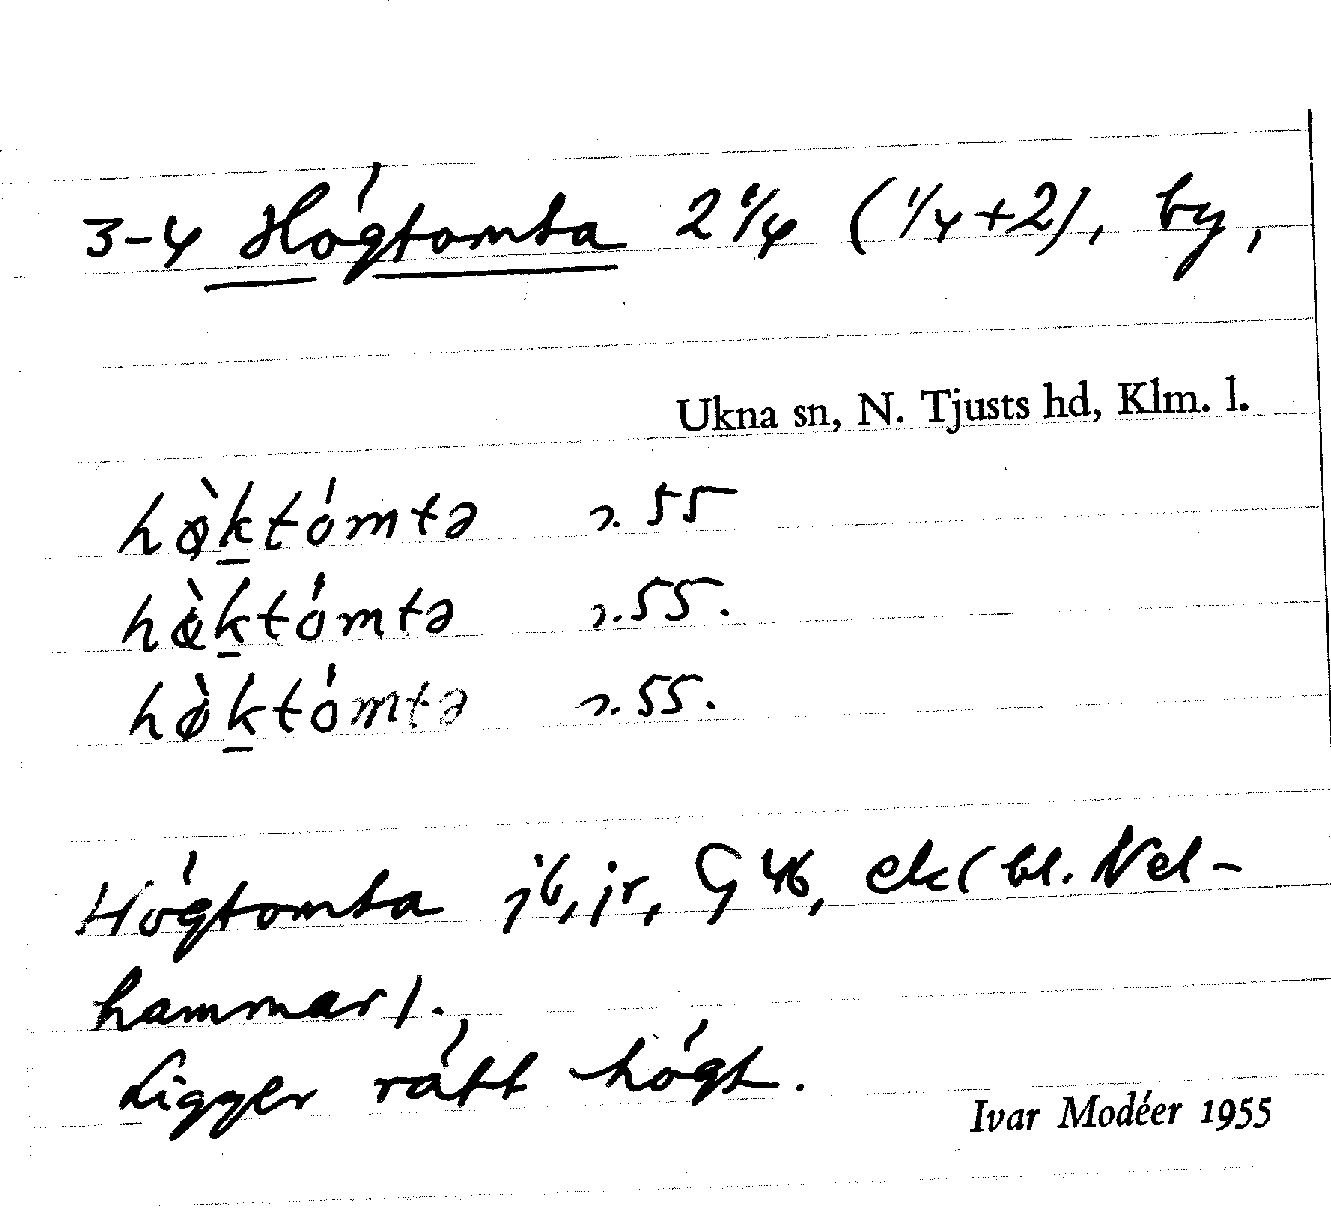 3-4 Högtomta 2 1/4 (1/4+2), by,
Ukna sn, N. Tjusts hd, Klm. l.
hø̀ḵtómtə 2.55
hø̀ḵtómtə 2.55.
hø̀ḵtómtə 2.55.
Högtomta jb, jr, G 46, ek (bl. Vel-
hammar).
Ligger rätt högt.
Ivar Modéer 1955